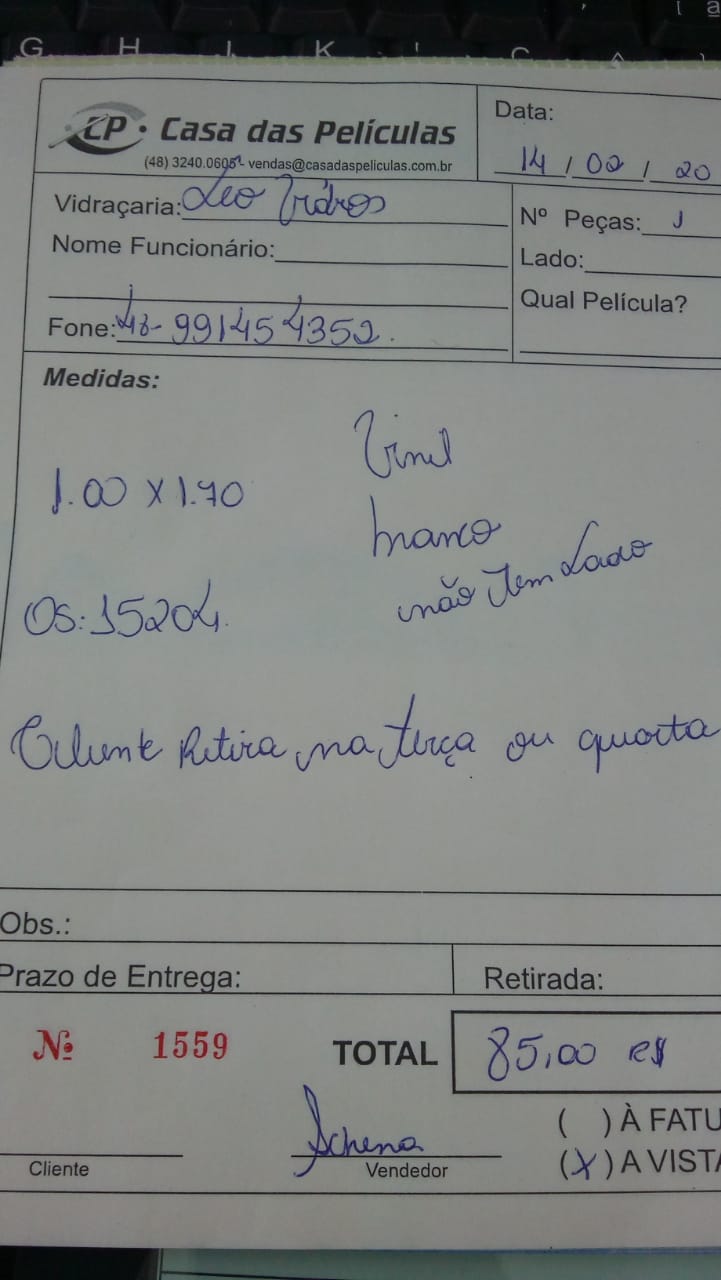 G H J K L Ç
CP · Casa das Películas
(48) 3240.0605 - vendas@casadaspeliculas.com.br
Data:
14 / 02 / 20
Vidraçaria: Leo Vidros
Nº Peças: 1
Nome Funcionário:
Lado:
Qual Película?
Fone: 48-991454352.
Medidas:
Vinil
1.00 x 1.70
branco
não tem Lado
OS: 15204.
Cliente Retira na terça ou quarta
Obs.:
Prazo de Entrega:
Retirada:
Nº 1559
TOTAL 85,00 R$
( ) À FATU
Schena
Cliente
Vendedor
(X) A VISTA